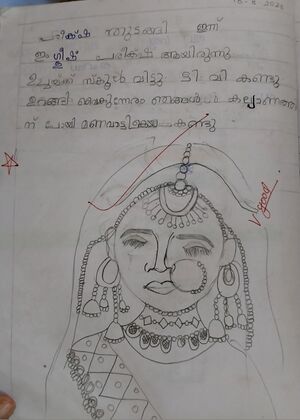 18-8-2023
പരീക്ഷ തുടങ്ങി ഇന്ന്
ഇംഗ്ലീഷ് പരീക്ഷ ആയിരുന്നു
ഉച്ചയ്ക്ക് സ്കൂൾ വിട്ടു ടി വി കണ്ടു
ഉറങ്ങി വൈകുന്നേരം ഞങ്ങൾ കല്യാണത്തി
ന് പോയി മണവാട്ടിയെ കണ്ടു
V. good